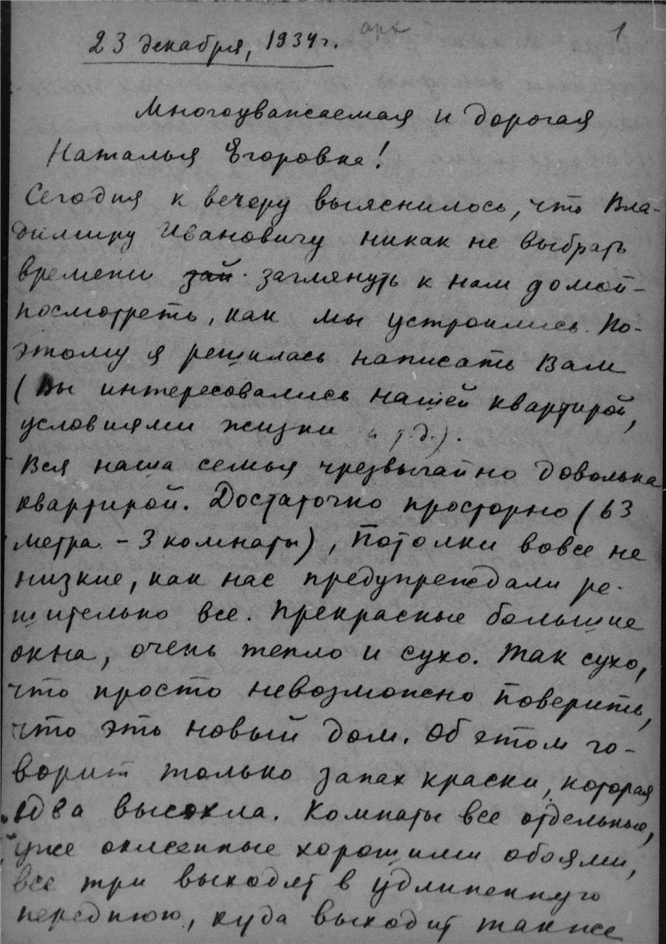 арх 1
23 декабря, 1934 г.
Многоуважаемая и дорогая
Наталья Егоровна!
Сегодня к вечеру выяснилось, что Вла-
димиру Ивановичу никак не выбрать
времени зай заглянуть к нам домой –
посмотреть, как мы устроились. По-
этому я решилась написать Вам
(Вы интересовались нашей квартирой,
условиями жизни и т.д.).
Вся наша семья чрезвычайно довольна
квартирой. Достаточно просторно (63
метра – 3 комнаты), потолки вовсе не
низкие, как нас предупреждали ре-
шительно все. Прекрасные большие
окна, очень тепло и сухо. Так сухо,
что просто невозможно поверить,
что это новый дом. Об этом го-
ворит только запах краски, которая
едва высохла. Комнаты все отдельные,
уже оклеенные хорошими обоями,
все три выходят в удлиненную
переднюю, куда выходит также